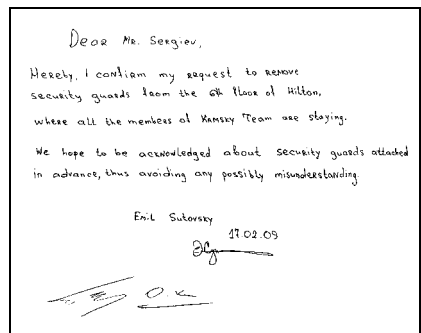 Dear Mr. Sergiev,
Hereby, I confirm my request to remove
security guards from the 6th floor of Hilton,
where all the members of Kamsky Team are staying.
We hope to be acknowledged about security guards attached
in advance, thus avoiding any possibly misunderstanding.
Emil Sutovsky
17.02.09